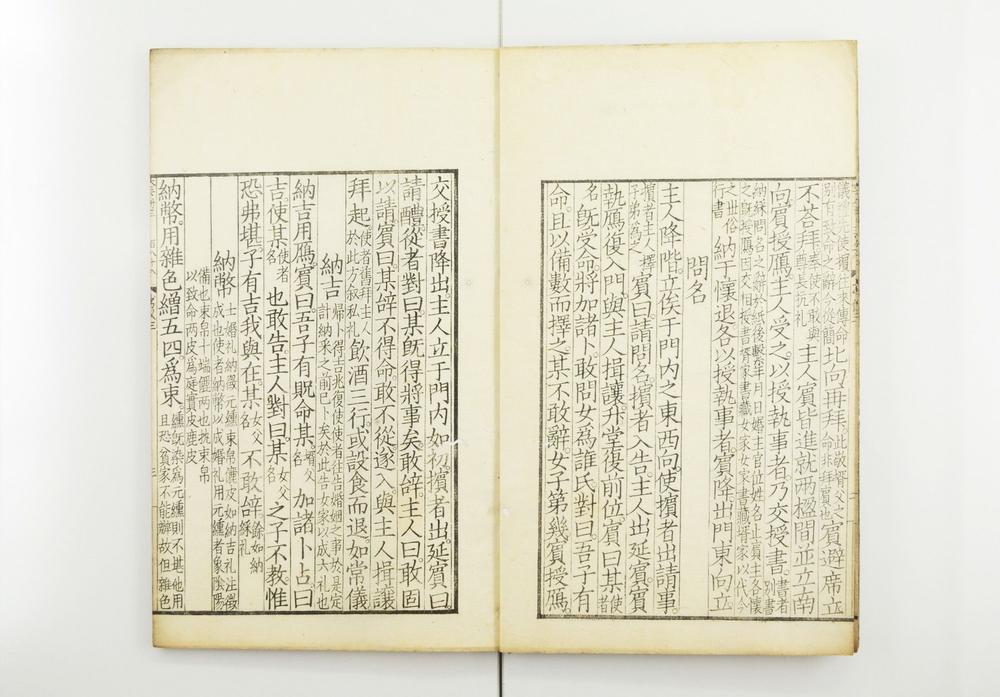 使擯相往來傳命別有致命之辭今從簡北向再拜此敬壻父之命非拜賓也賓避席立
不荅拜奉使不敢與尊長抗礼主人賓皆進就兩楹間並立南
向賓授鴈主人受之以授執事者乃交授書書者別書
納采問名之辭於紙後繫年月日婚主官位姓名止賓主各懷之旣授鴈因交相授書壻家書藏女家女家書藏壻家以代今
之世俗行書納于懷退各以授執事者賓降出門東向立
問名
主人降階立俟于門内之東西向使擯者出請事
擯者主人擇子弟為之賓曰請問名擯者入告主人出延賓賓
執鴈復入門與主人揖讓升堂復前位賓曰某使者
名旣受命將加諸卜敢問女爲誰氏對曰吾子有
命且以備數而擇之某不敢辭女子第幾賓授鴈
交授書降出主人立于門内如初擯者出延賓曰
請醴從者對曰某旣得將事矣敢辞主人曰敢固
以請賓曰某辞不得命敢不從遂入與主人揖讓
拜起使者舊拜主人於此方叙私礼飲酒三行或設食而退如常儀
納吉歸卜得吉兆復使使者往告婚姻之事於是定計納采之前已卜矣於此告女家以成六礼也
納吉用鴈賓曰吾子有貺命某壻父名加諸卜占曰
吉使某使者名也敢告主人對曰某女父名之子不教惟
恐弗堪子有吉我與在某女父名不敢辞餘如納采礼
納幣士婚礼納徵元纁束帛儷皮如納吉礼注徵成也使者納幣以成婚礼用元纁者象陰陽
備也束帛十端儷兩也執束帛以致命兩皮爲庭實皮鹿皮
納幣用雜色繒五四爲束纁旣染為元纁則不堪他用且恐貧家不能辦故但雜色